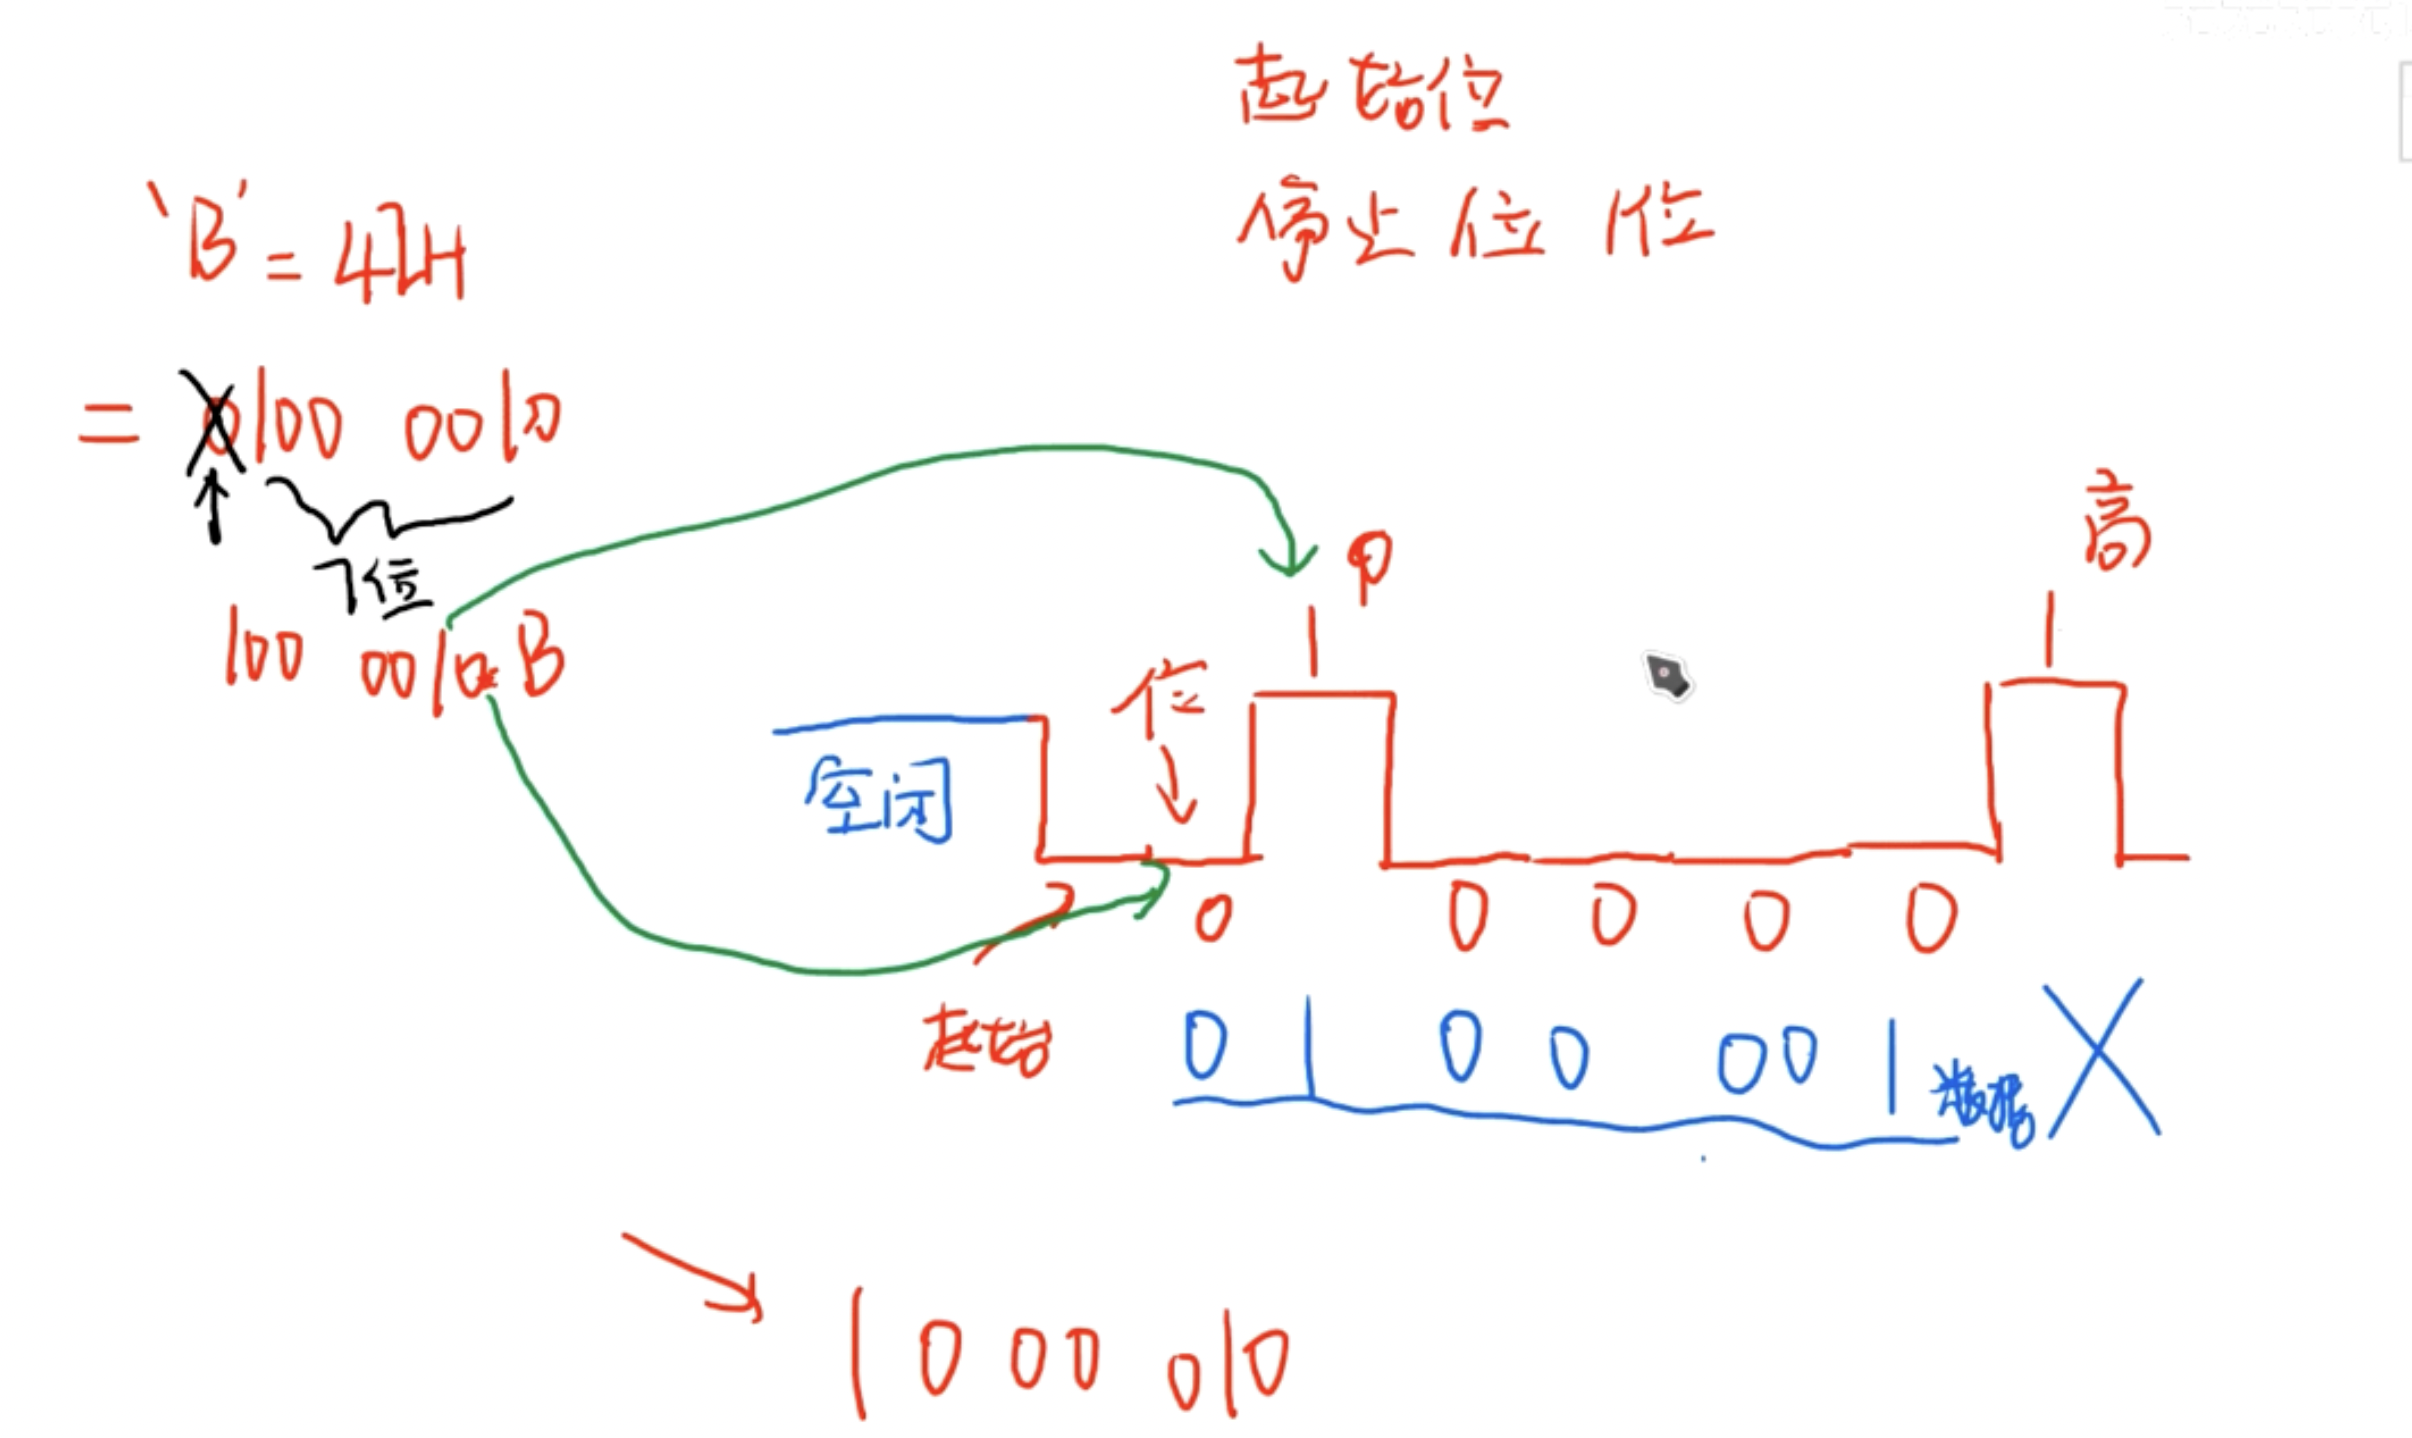 起始位
停止位 1位
'B' = 42H
= 0100 0010
7位
100 0010 B
高
P
1
1
低
空闲
0
0
0
0
0
起始
0 1 0 0 0 0 1 数据
1 0 0 0 0 1 0